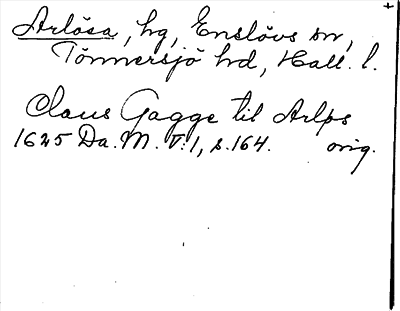 Arlösa, hg, Enslövs sn,
Tönnersjö hd, Hall. l.
Claus Gagge til Arløs
1625 Da. M. V:1, s. 164. orig.